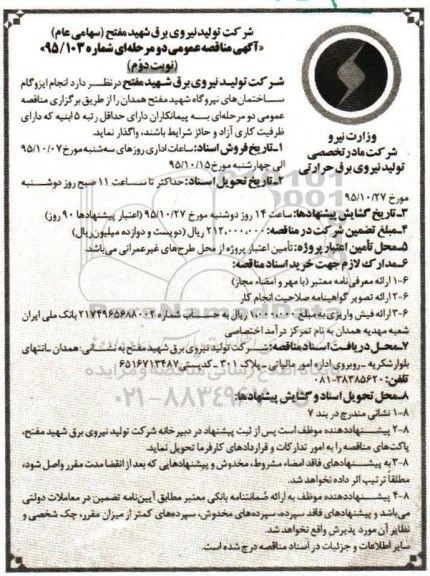 شرکت تولید نیروی برق شهید مفتح (سهامی عام)
«آگهی مناقصه عمومی دو مرحله‌ای شماره ۹۵/۱۰۳»
(نوبت دوم)
وزارت نیرو
شرکت مادر تخصصی
تولید نیروی برق حرارتی
شرکت تولید نیروی برق شهید مفتح در نظر دارد انجام ایزوگام
ساختمان‌های نیروگاه شهید مفتح همدان را از طریق برگزاری مناقصه
عمومی دو مرحله‌ای به پیمانکاران دارای حداقل رتبه ۵ ابنیه که دارای
ظرفیت کاری آزاد و حائز شرایط باشند، واگذار نماید.
۱-تاریخ فروش اسناد: ساعات اداری روزهای سه‌شنبه مورخ ۹۵/۱۰/۰۷
الی چهارشنبه مورخ ۹۵/۱۰/۱۵
۲-تاریخ تحویل اسناد: حداکثر تا ساعت ۱۱ صبح روز دوشنبه
مورخ ۹۵/۱۰/۲۷
۳-تاریخ گشایش پیشنهادها: ساعت ۱۴ روز دوشنبه مورخ ۹۵/۱۰/۲۷ (اعتبار پیشنهادها ۹۰ روز)
۴-مبلغ تضمین شرکت در مناقصه: ۲۱۲٬۰۰۰٬۰۰۰ ریال (دویست و دوازده میلیون ریال)
۵-محل تأمین اعتبار پروژه: تأمین اعتبار پروژه از محل طرح‌های غیرعمرانی می‌باشد.
۶-مدارک لازم جهت خرید اسناد مناقصه:
۶-۱ ارائه معرفی‌نامه معتبر (با مهر و امضاء مجاز)
۶-۲ ارائه تصویر گواهینامه صلاحیت انجام کار
۶-۳ ارائه فیش واریزی به مبلغ ۱٬۰۰۰٬۰۰۰ ریال به حساب شماره ۲۱۷۴۹۶۵۶۸۸۰۰۲ بانک ملی ایران
شعبه مهدیه همدان به نام تمرکز درآمد اختصاصی
۷-محل دریافت اسناد مناقصه: شرکت تولید نیروی برق شهید مفتح به نشانی: همدان-انتهای
بلوار شکریه-روبروی اداره امور مالیاتی-پلاک ۳۱۱-کدپستی ۶۵۱۶۷۱۳۴۸۷
تلفن: ۳۸۳۸۵۶۲۰-۰۸۱
۸-محل تحویل اسناد و گشایش پیشنهادها:
۸-۱ نشانی مندرج در بند ۷
۸-۲ پیشنهاددهنده موظف است پس از ثبت پیشنهاد در دبیرخانه شرکت تولید نیروی برق شهید مفتح،
پاکت‌های مناقصه را به امور تدارکات و قراردادهای کارفرما تحویل نماید.
۸-۳ به پیشنهادهای فاقد امضاء، مشروط، مخدوش و پیشنهادهایی که بعد از انقضا مدت مقرر واصل شود،
مطلقاً ترتیب اثر داده نخواهد شد.
۸-۴ پیشنهاددهنده موظف به ارائه ضمانتنامه بانکی معتبر مطابق آیین‌نامه تضمین در معاملات دولتی
می‌باشد و پیشنهادهای فاقد سپرده، سپرده‌های مخدوش، سپرده‌های کمتر از میزان مقرر، چک شخصی و
نظایر آن مورد پذیرش واقع نخواهد شد.
سایر اطلاعات و جزئیات در اسناد مناقصه درج شده است.
۰۲۱-۸۸۳۴۹۶۷۰-۵